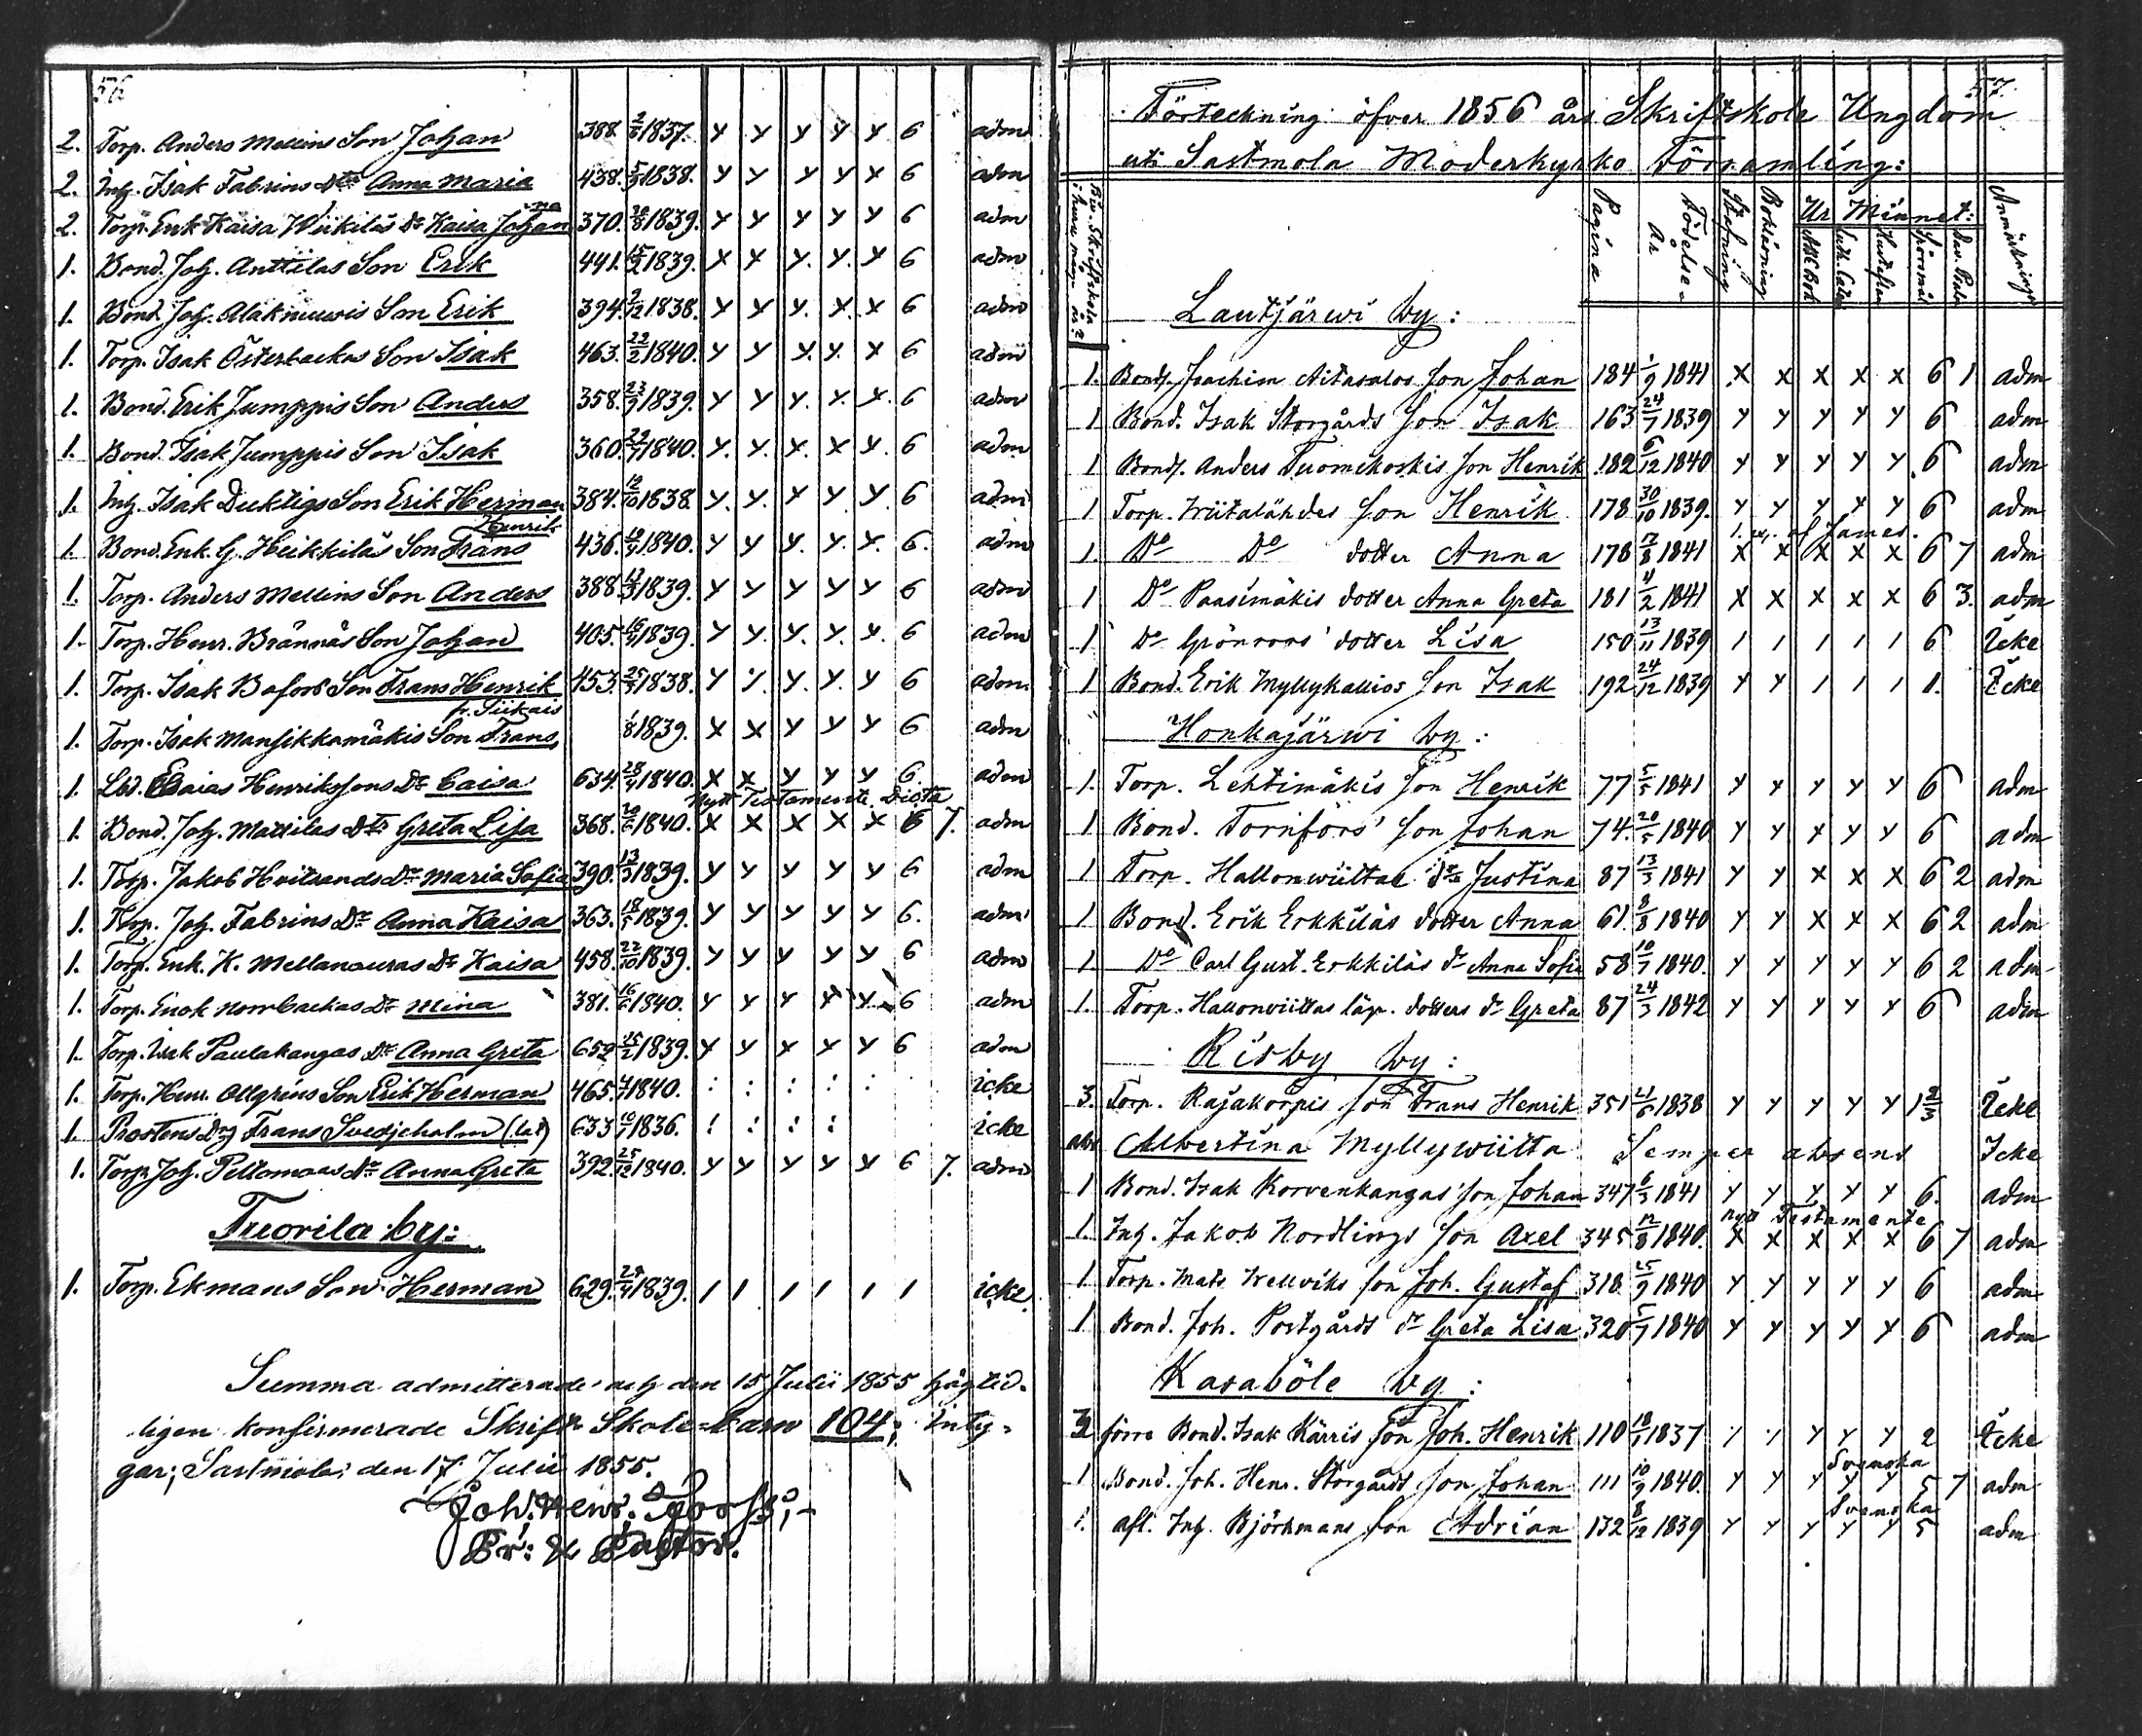 56
2. Torp. Anders Mellins Son Johan 388. 2/6 1837. y y y y y 6 adm
2. Inh. Isak Fabrins Dtr Anna Maria 438. 5/9 1838. y y y y x 6 adm
2. Torp. Erik Kaisa Wiikiläs Dr Kaisa Johanna 370. 20/8 1839. y y y y y 6 adm
1. Bond. Joh. Anttilas Son Erik 441. 15/2 1839. x x y. y. y 6 adm
1. Bond. Joh. Alakniuwis Son Erik 394. 2/12 1838. y y y. x. x 6 adm
1. Torp. Isak Österbackas Son Isak 463. 22/2 1840. y y y. y. x 6 adm
1. Bond. Erik Jumppis Son Anders 358. 23/9 1839. y y y. y. x. 6 adm
1. Bond. Isak Jumppis Son Isak 360. 29/7 1840. y. y. y. x y. 6 adm
1. Inh. Isak Ducktigs Son Erik Herman 384. 12/10 1838. y. y. x y. y. 6 adm
1. Bond. Erik G. Heikkiläs Son Frans Henrik 436. 19/9 1840. y y y. y. y. 6. adm
1. Torp. Anders Mellins Son Anders 388. 13/3 1839. y y y y y 6 adm
1. Torp. Henr. Brännäs Son Johan 405. 16/9 1839. y y. y. y. y. 6 adm
1. Torp. Isak Bafors Son Frans Henrik 453. 25/3 1838. y y. y. y. y 6 adm
fr. Siikais
1. Torp. Isak Mansikkamäkis Son Frans 1/8 1839. x x y y y 6 adm
1. Lbd. Esaias Henrikssons Dr Caisa 634. 28/4 1840. x x y y y 6. adm
Nytt Testamente
1. Bond. Joh. Mattilas Dtr Greta Lisa 368. 20/6 1840. x x x x x 6 7. adm
1. Torp. Jakob Hvitsands Dr Maria Sofia 390. 13/3 1839. y y y y y 6 adm
1. Torp. Joh. Fabrins Dr Anna Kaisa 363. 18/5 1839. y y y y y 6. adm
1. Torp. Erik. K. Mellanouras Dr Kaisa 458. 22/10 1839. y y y y y 6 adm
1. Torp. Enok Norrbackas Dr Mina 381. 16/6 1840. y y y y y 6 adm
1. Torp. Isak Paulakangas Dr Anna Greta 659 15/2 1839. y y y y y 6 adm
1. Torp. Henr. Allgréns Son Erik Herman 465. 1840. : : : : : icke
1. Prostens Dng Frans Svedjeholm 633 10/7 1836. : : : : icke
1. Torp. Joh. Peltomaas dr Anna Greta 392. 25/12 1840. y y y y x 6 7. adm
Tuorila by:
1. Torp. Ekmans Son Herman 629. 27/4 1839. 1 1 1 1 1 1 icke
Summa admitterade och den 15 Julii 1855 högtid-
ligen konfirmerade Skrift Skole-barn 104; inty-
gar; Sastmola; den 17 Julii 1855.
Joh. Henr.
Pr: & Pastor.
57.
Förteckning öfver 1856 års Skriftskole Ungdom
uti Sastmola Moderkyrko Församling:
Pagina Födelse-år Stafning Bokläsning Ur Minnet: ABC Bok Luth. Cates Hustafla Spörsmål Dav. Psalm Anmärkningar
Lautjärwi by:
1. Bond. Joachim Aitasalos son Johan 184 1/9 1841 x x x x x 6 1 adm
1 Bond. Isak Storgårds son Isak 163 24/7 1839 y y y y y 6 adm
1 Bond. Anders Tuomikoskis son Henrik 182 6/12 1840 y y y y y 6 adm
1 Torp. Wiitalähdes son Henrik 178 30/10 1839. y y y y y 6 adm
1. Do Do dotter Anna 178 12/8 1841 x x x x x 6 7 adm
1 Do Paasimäkis dotter Anna Greta 181 4/2 1841 x x x x x 6 3. adm
1 Do Grönroos' dotter Lisa 150 13/11 1839 1 1 1 1 1 6 Icke
1 Bond. Erik Myllykallios son Isak 192 24/12 1839 y y 1 1 1 1. Icke
Honkajärwi by:
1. Torp. Lehtimäkis son Henrik 77 5/5 1841 y y y y y 6 adm
1 Bond. Tornfors' son Johan 74. 20/5 1840 y y y y y 6 adm
1 Torp. Hallonwiittas dtr Justina 87 13/3 1841 y y x x x 6 2 adm
1 Bond. Erik Erkkiläs dotter Anna 61. 8/8 1840 y y x x x 6 2 adm
1 Do Carl Gust. Erkkiläs dr Anna Sofia 58 10/7 1840. y y y y y 6 2 adm
1. Torp. Hallonwiittas läg. dotters dr Greta 87 24/3 1842 y y y y y 6 adm
Risby by:
3. Torp. Rajakorpis son Frans Henrik 351 21/6 1838 y y y y y 1 2/3 Icke
abs Albertina Myllywiitta Semper absens Icke
1 Bond. Isak Korvenkangas' son Johan 347 6/3 1841 y y y y y 6. adm
Nytt Testamente
1. Inh. Jakob Nordlings son Axel 345 12/8 1840. x x x x x 6 7 adm
1 Torp. Mats Wellviks son Joh. Gustaf 318 25/9 1840 y y y y y 6 adm
1 Bond. Joh. Postgårds dr Greta Lisa 320 5/7 1840 y y y y y 6 adm
Kasaböle by:
3 förre Bond. Isak Kärris son Joh. Henrik 110 18/1 1837 y y y y y 2 Icke
Svenska
1 Bond. Joh. Henr. Storgårds son Johan 111 10/9 1840. y y y y y 5 7 adm
Svenska
1. afl. Inh. Björkmans son Adrian 132 8/12 1839 y y y y y 5 adm